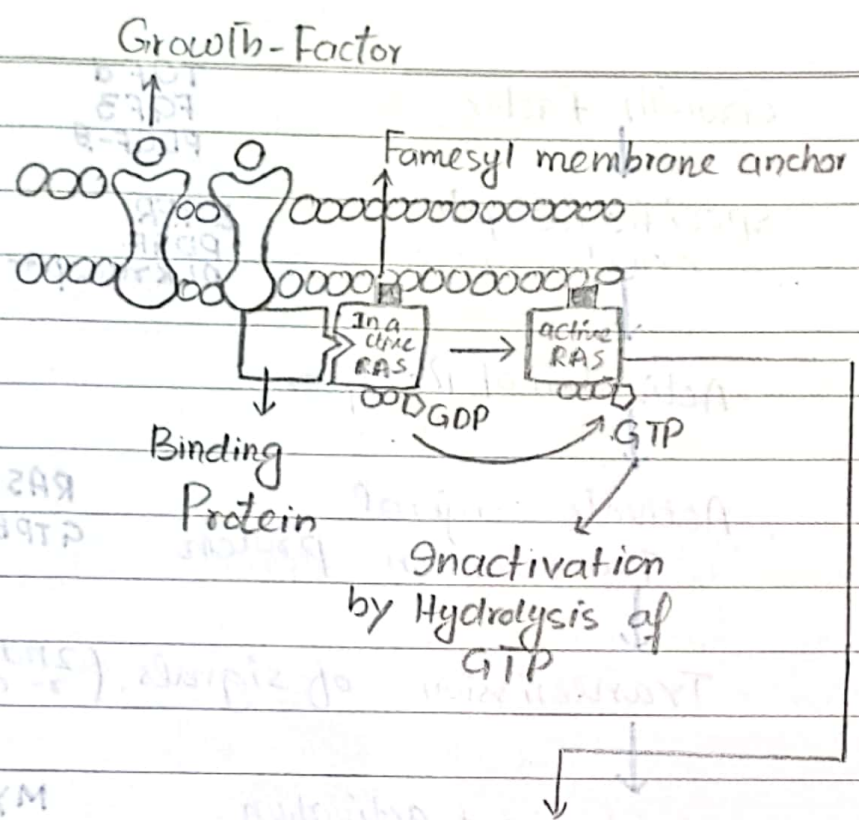 Growth-Factor
Famesyl membrone anchor
Ina
ctive
RAS
active
RAS
GDP
GTP
Binding
Protein
Inactivation
by Hydrolysis of
GTP